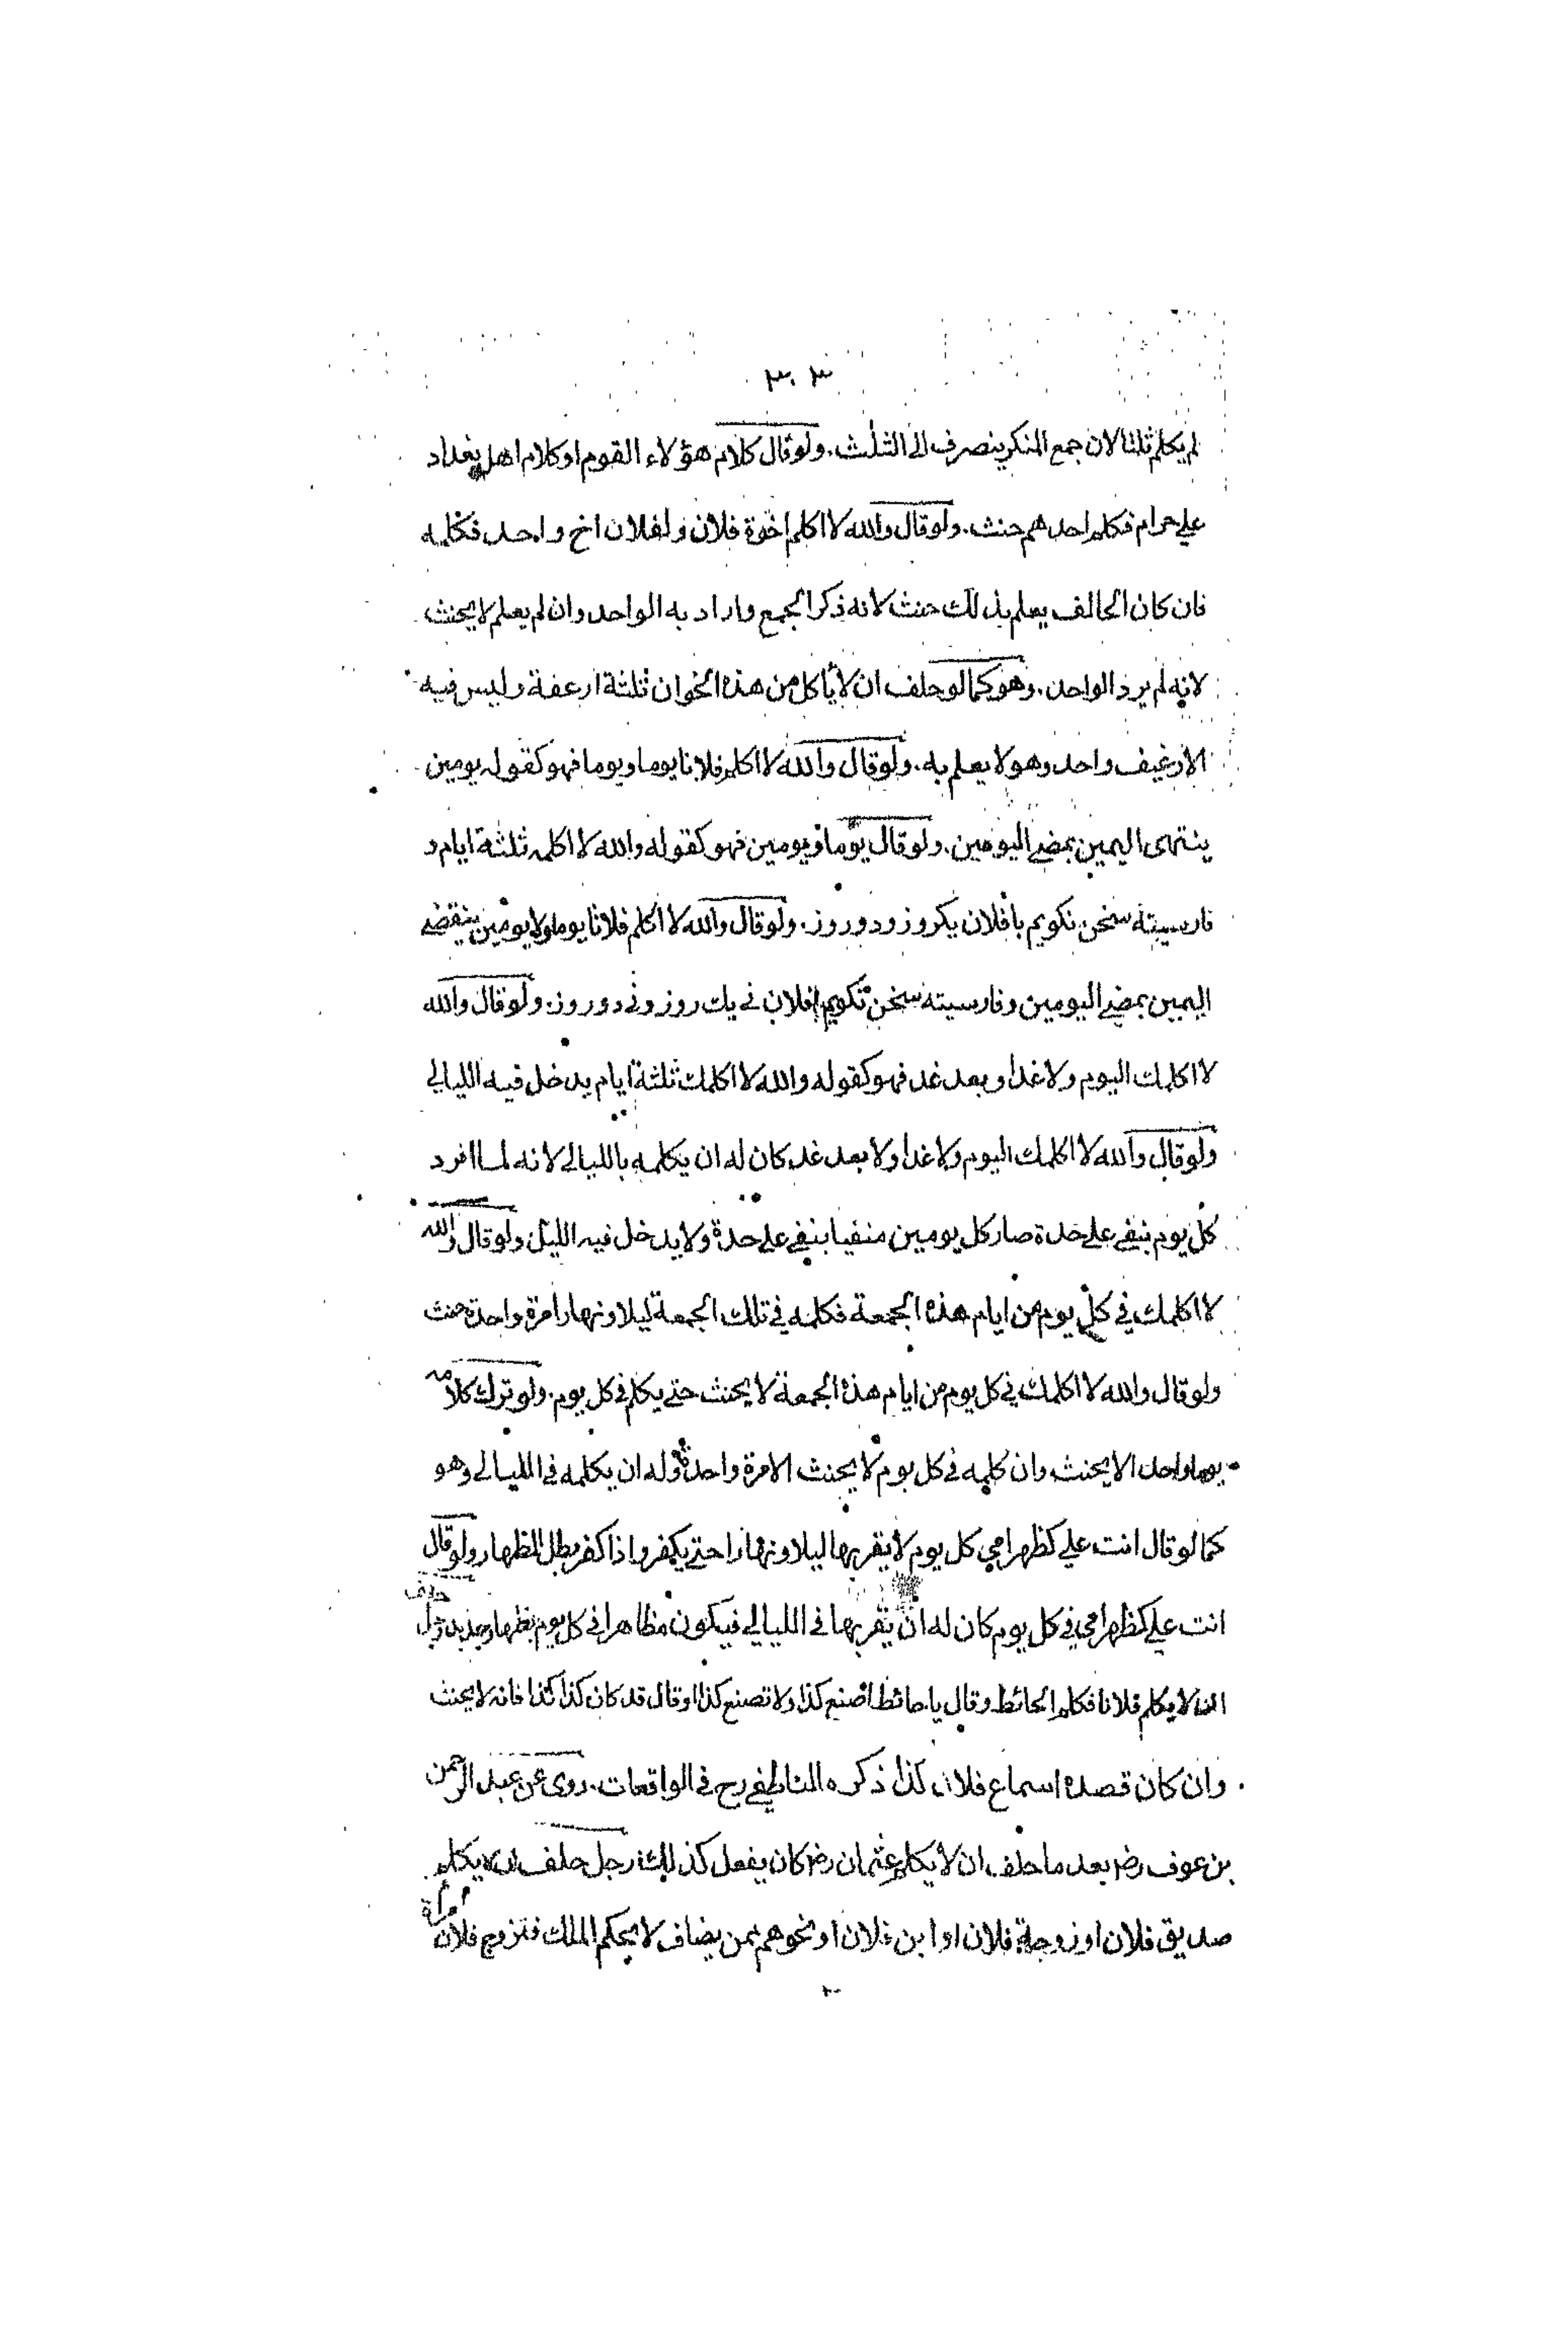 ٣٠٣
لم يكلم ثلثا لان جمع المنكر ينصرف الى الثلث. ولو قال كلام هؤلاء القوم او كلام اهل بغداد
علي حرام فكلم احدهم حنث. ولو قال والله لا اكلم اخوة فلان ولفلان اخ واحد فكلمه
فان كان الحالف يعلم بذلك حنث لانه ذكر الجمع واراد به الواحد وان لم يعلم لا يحنث
لانه لم يرد الواحد. وهو كما لو حلف ان لا يأكل من هذه الخوان ثلثة ارغفة وليس فيه
الا رغيف واحد وهو لا يعلم به. ولو قال والله لا اكلم فلانا يوما ويوما فهو كقوله يومين
ينتهى اليمين بمضي اليومين. ولو قال يوما ويومين فهو كقوله والله لا اكلمه ثلثة ايام و
فارسيته سخن نكويم با فلان يكروز ودوروز. ولو قال والله لا اكلم فلانا يوما ولا يومين ينقضي
اليمين بمضي اليومين وفارسيته سخن نكويم بافلان نى يك روز ونى دوروز. ولو قال والله
لا اكلمك اليوم ولا غدا وبعد غد فهو كقوله والله لا اكلمك ثلثة ايام يدخل فيه الليالي
ولو قال والله لا اكلمك اليوم ولا غدا ولا بعد غد كان له ان يكلمه بالليالي لانه لما افرد
كل يوم بنفي على حدة صار كل يومين منفيا بنفي على حدة ولا يدخل فيه الليل ولو قال والله
لا اكلمك في كل يوم من ايام هذه الجمعة فكلمه في تلك الجمعة ليلا ونهارا مرة واحدة حنث
ولو قال والله لا اكلمك في كل يوم من ايام هذه الجمعة لا يحنث حتى يكلم في كل يوم. ولو ترك كلامه
يوما واحدا لا يحنث وان كلمه في كل يوم لا يحنث الا مرة واحدة وله ان يكلمه في الليالي وهو
كما لو قال انت علي كظهر امي كل يوم لا يقربها ليلا ونهارا حتى يكفر واذا كفر بطل الظهار ولو قال
انت علي كظهر امي في كل يوم كان له ان يقربها في الليالي فيكون مظاهرا في كل يوم بظهار رجل حلف
ان لا يكلم فلانا فكلم الحائط وقال يا حائط اصنع كذا ولا تصنع كذا او قال قد كان كذا كذا فانه لا يحنث
وان كان قصده اسماع فلان كذا ذكره الناطفي رح في الواقعات. روى عن عبد الرحمن
بن عوف رض بعد ما حلف ان لا يكلم عثمان رض كان يفعل كذلك رجل حلف ان لا يكلم
صديق فلان او زوجة فلان او ابن فلان او نحوهم بمن يضاف لا بحكم الملك فتزوج فلان امرأة